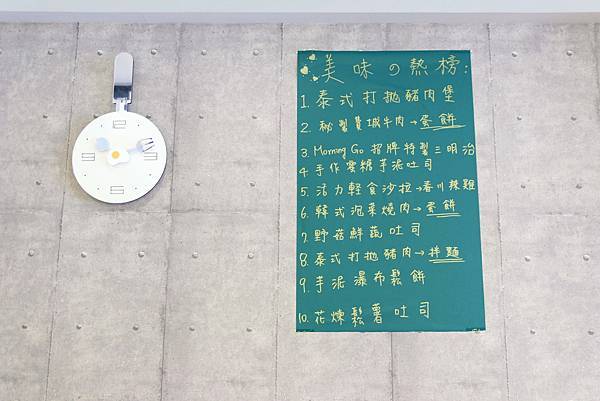 美味の熱榜:
1. 泰式打拋豬肉堡
2. 秘製費城牛肉→蛋餅
3. Morning Go 招牌特製三明治
4 手作零糖芋泥吐司
5. 活力輕食沙拉→春川辣雞
6. 韓式泡菜燒肉→蛋餅
7. 野菇鮮蔬吐司
8. 泰式打拋豬肉→拌麵
9. 芋泥瀑布鬆餅
10. 花煉鬆薯吐司